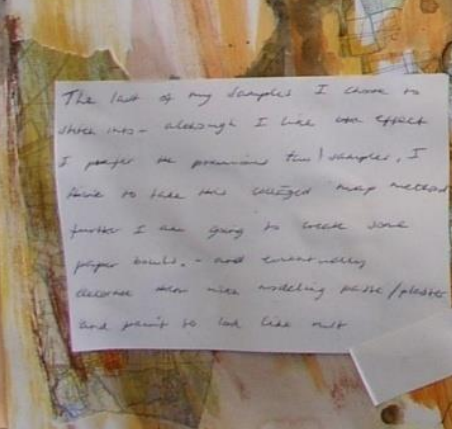 The last of my samples I chose to
stitch into - although I like the effect
I prefer the previous two samples. I
to take this collaged map method
further I am going to create some
paper bowls. - and eventually
decorate them with modeling paste/plaster
and paint to look like rust